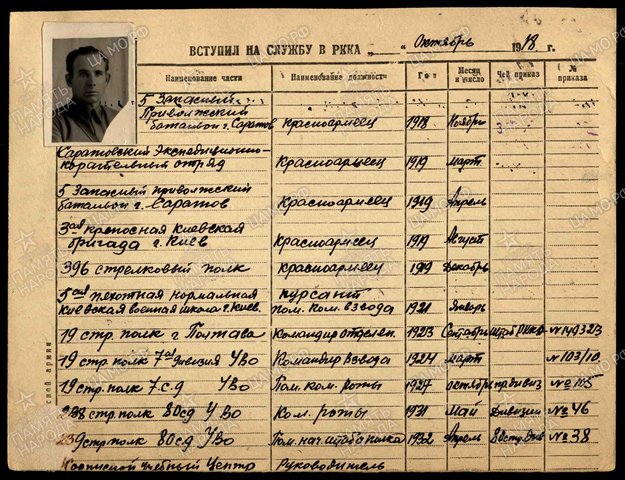 ВСТУПИЛ НА СЛУЖБУ В РККА „ “ Октябрь 1918 г.
Наименование части Наименование должности Год Месяц и число Чей приказ № приказа
5 Запасный
Приволжский
батальон г. Саратов Красноармеец 1918 Ноябрь
Саратовский Экспедиционно-
карательный отряд Красноармеец 1919 март
5 Запасный приволжский
батальон г. Саратов Красноармеец 1919 Апрель
3ая крепосная Киевская
бригада г. Киев Красноармеец 1919 Август
396 стрелковый полк Красноармеец 1919 Декабрь
5ая пехотная нормальная Курсант
Киевская военная школа г. Киев. пом. Ком. взвода 1921 Январь
19 стр. полк г Полтава Командир отделен. 1923 Сентябрь
19 стр. полк 7ая дивизия УВО Командир взвода 1924 март №103/10.
19 стр. полк 7 с.д УВО Пом. ком. роты 1927 октябрь №
238 стр. полк 80 сд УВО Ком. роты 1931 Май Дивизии №46
239 стр. полк 80 сд УВО Пом. нач. штаба полка 1932 Апрель 80 стр. див №38
Учебный Центр Руководитель
ПАМЯТЬ НАРОДА
ЦАМО.РФ